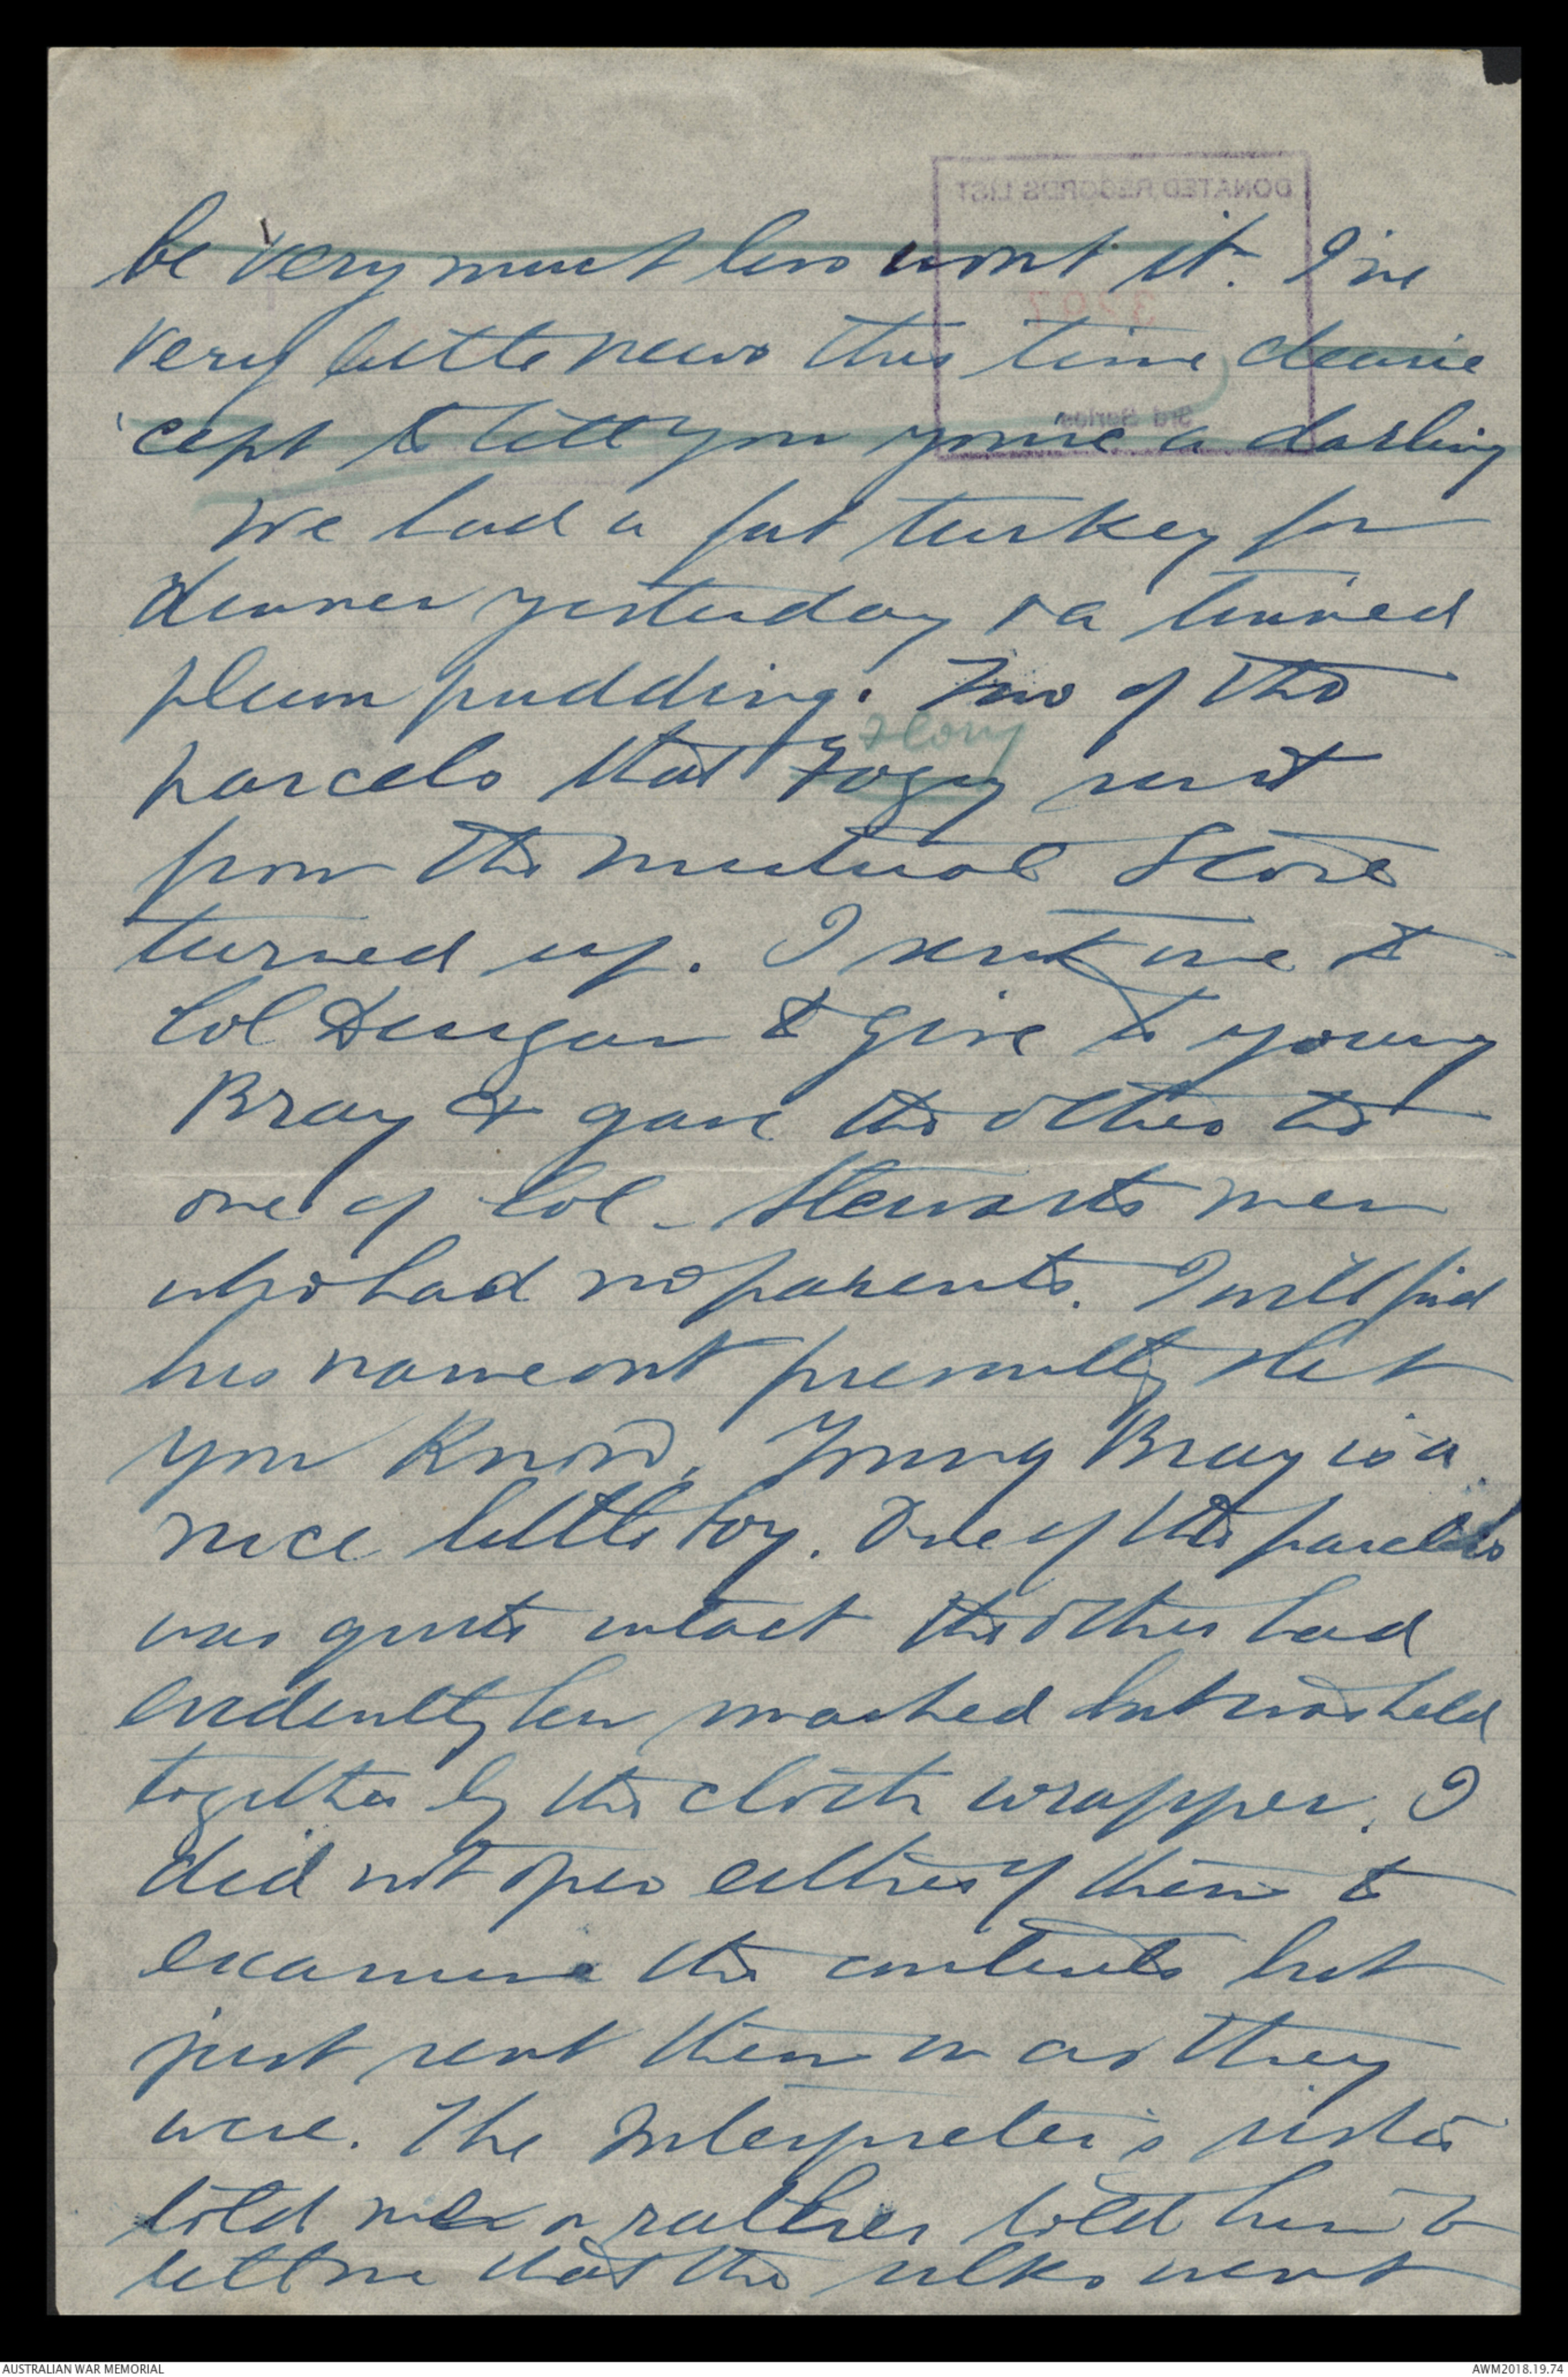 DONATED RECORDS LIST
3297
3rd Series
be very much less wont it. I've
very little news this time dearie
'cept to tell you youre a darling
We had a fat turkey for
dinner yesterday & a tinned
plum pudding. Two of the
Flory
parcels that Fogey sent
from the Mutual Store
turned up. I sent one to
Col Duigan to give to young
Bray & gave the other to
one of Col. Stewarts men
who had no parents. I will find
his name out presently & let
you know. Young Bray is a
nice little boy. One of the parcels
was quite intact the other had
evidently been smashed but was held
together by the cloth wrapper. I
did not open either of them to
examine the contents but
just sent them on as they
were. The Interpreter's sister
told me or rather told him to
tell me that the silks went
AUSTRALIAN WAR MEMORIAL
AWM2018.19.74